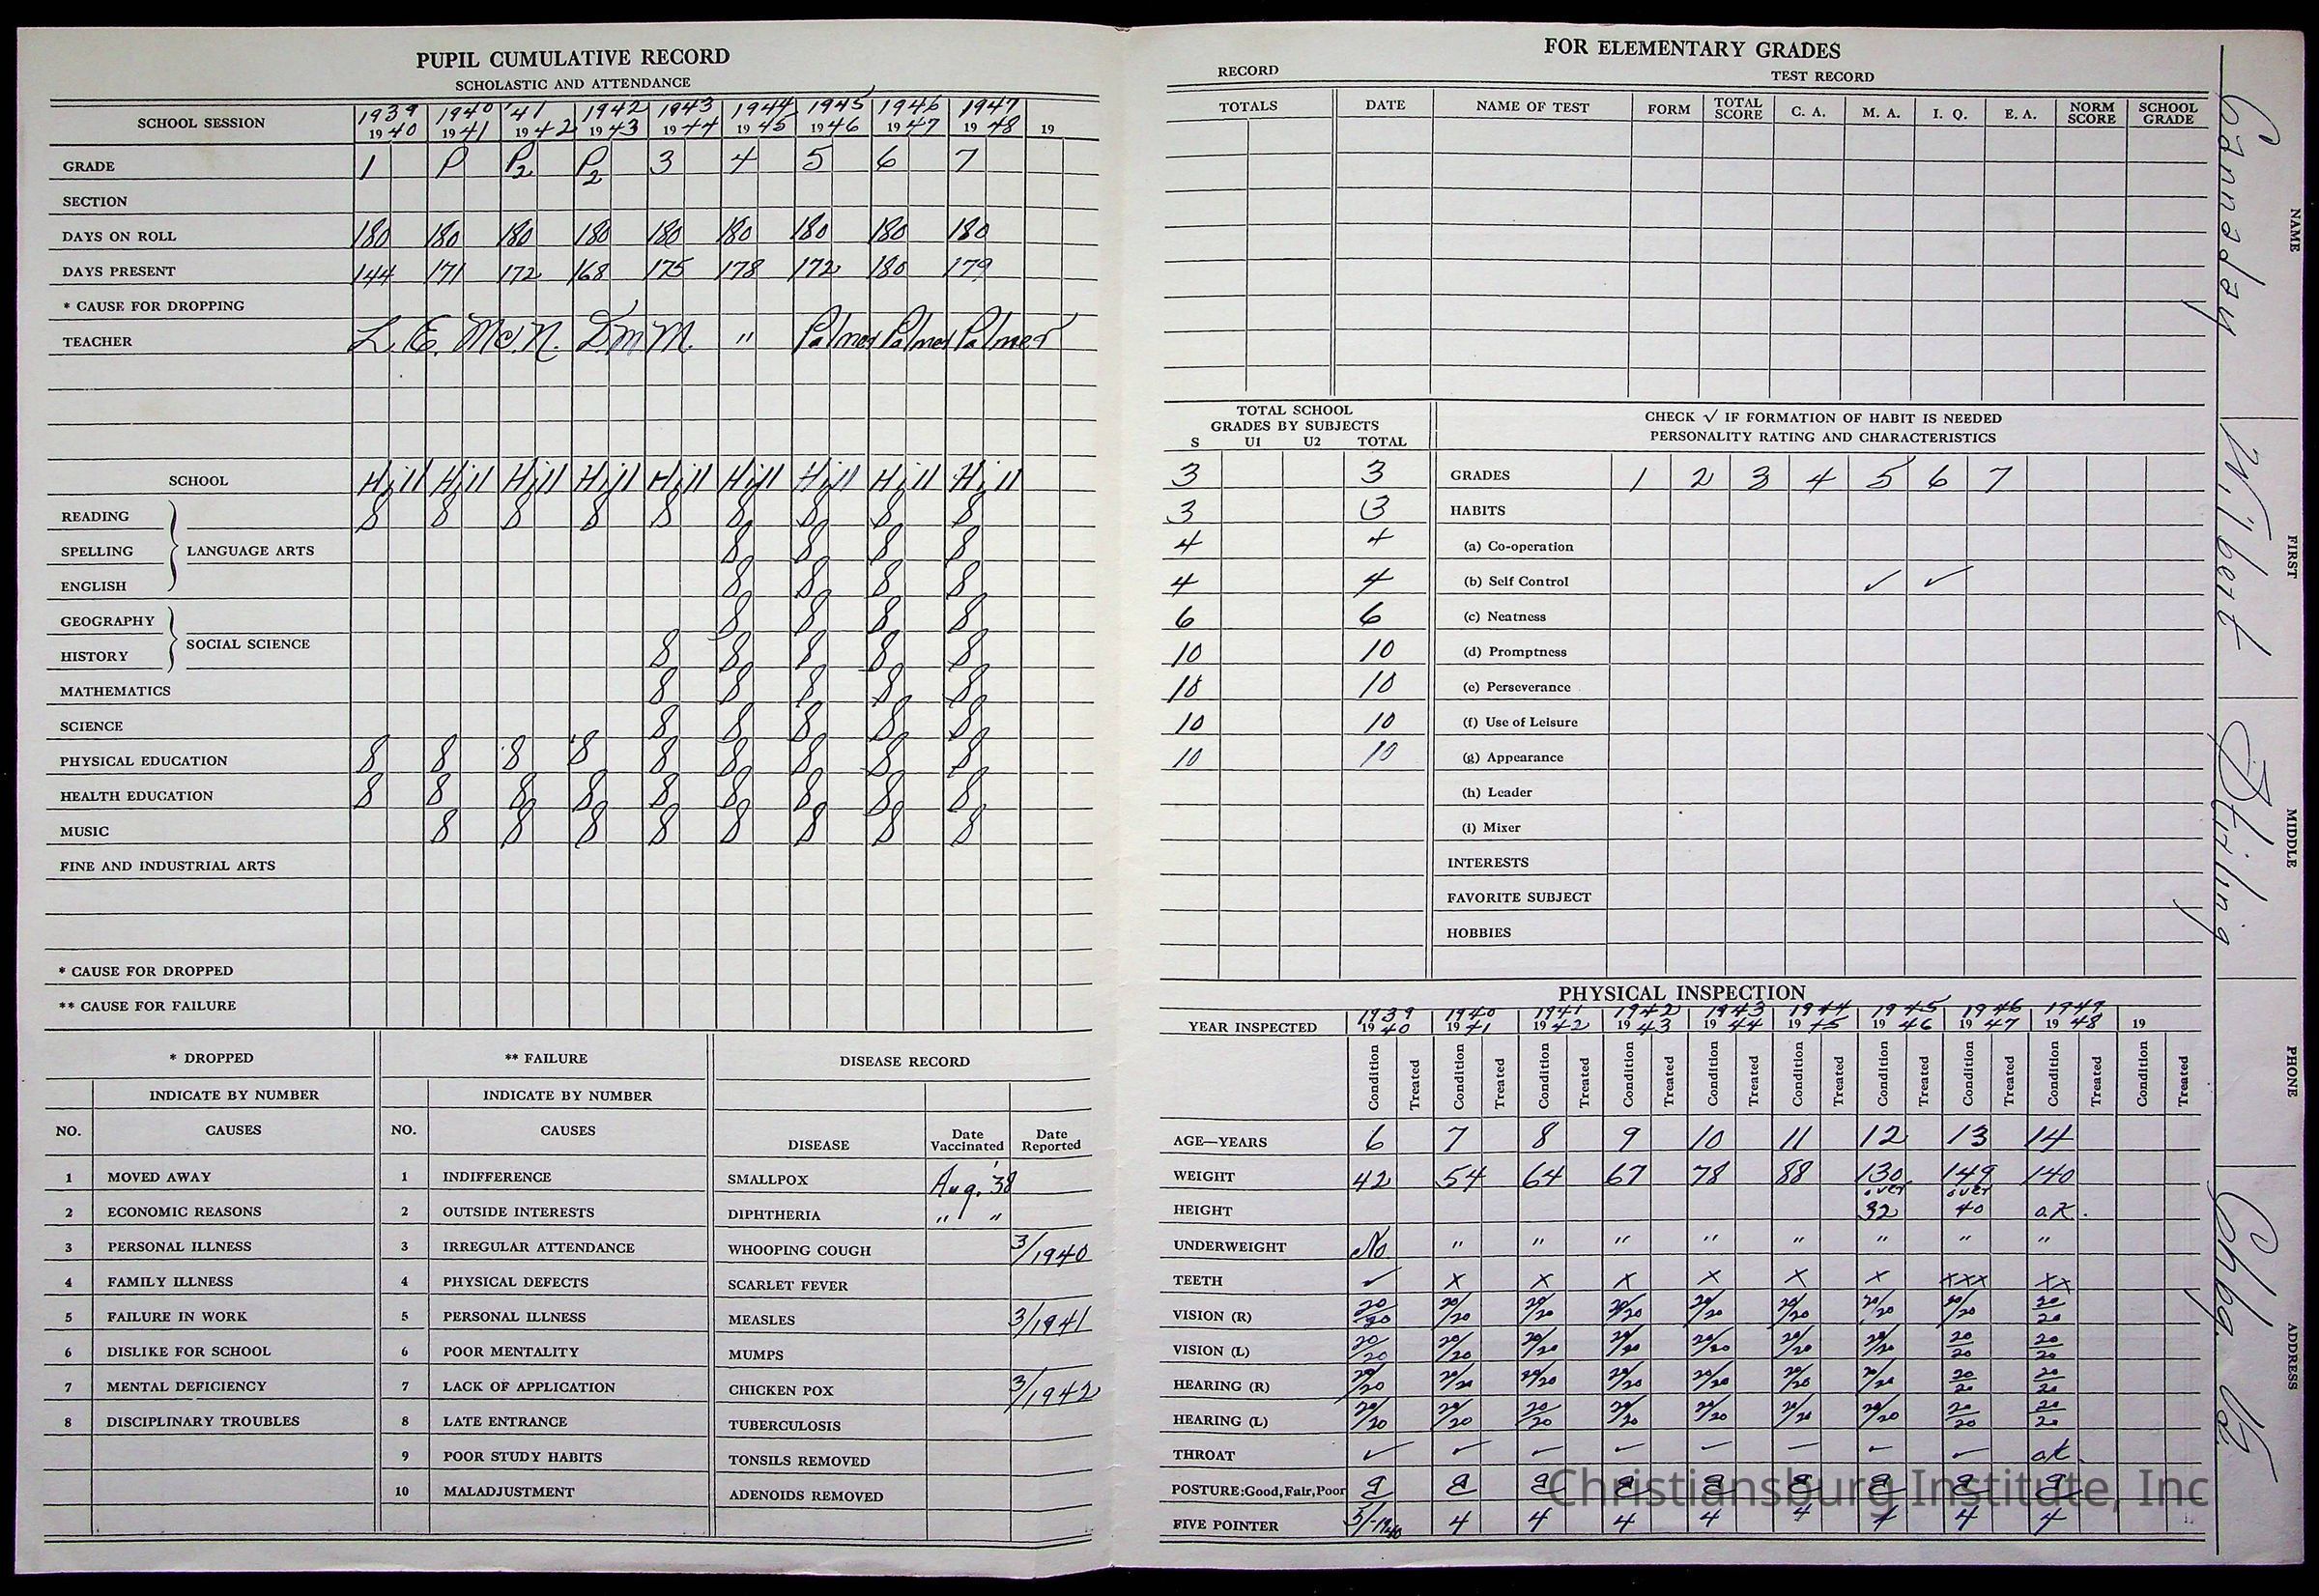 PUPIL CUMULATIVE RECORD
SCHOLASTIC AND ATTENDANCE
SCHOOL SESSION 1939 1940 1940 1941 '41 1942 1942 1943 1943 1944 1944 1945 1945 1946 1946 1947 1947 1948 19
GRADE 1 P P2 P2 3 4 5 6 7
SECTION
DAYS ON ROLL 180 180 180 180 180 180 180 180 180
DAYS PRESENT 144 171 172 168 175 178 172 180 179
* CAUSE FOR DROPPING
TEACHER L. E. McN. D.M M. " Palmer Palmer Palmer
SCHOOL Hill Hill Hill Hill Hill Hill Hill Hill Hill
READING S S S S S S S S S
SPELLING LANGUAGE ARTS S S S S
ENGLISH S S S S
GEOGRAPHY S S S S
HISTORY SOCIAL SCIENCE S S S S S
MATHEMATICS S S S S S
SCIENCE S S S S S
PHYSICAL EDUCATION S S S S S S S S S
HEALTH EDUCATION S S S S S S S S S
MUSIC S S S S S S S S
FINE AND INDUSTRIAL ARTS
* CAUSE FOR DROPPED
** CAUSE FOR FAILURE
* DROPPED
INDICATE BY NUMBER
NO. CAUSES
1 MOVED AWAY
2 ECONOMIC REASONS
3 PERSONAL ILLNESS
4 FAMILY ILLNESS
5 FAILURE IN WORK
6 DISLIKE FOR SCHOOL
7 MENTAL DEFICIENCY
8 DISCIPLINARY TROUBLES
** FAILURE
INDICATE BY NUMBER
NO. CAUSES
1 INDIFFERENCE
2 OUTSIDE INTERESTS
3 IRREGULAR ATTENDANCE
4 PHYSICAL DEFECTS
5 PERSONAL ILLNESS
6 POOR MENTALITY
7 LACK OF APPLICATION
8 LATE ENTRANCE
9 POOR STUDY HABITS
10 MALADJUSTMENT
DISEASE RECORD
DISEASE Date Vaccinated Date Reported
SMALLPOX Aug. '38
DIPHTHERIA " "
WHOOPING COUGH 3/1940
SCARLET FEVER
MEASLES 3/1941
MUMPS
CHICKEN POX 3/1942
TUBERCULOSIS
TONSILS REMOVED
ADENOIDS REMOVED
FOR ELEMENTARY GRADES
RECORD TEST RECORD
TOTALS DATE NAME OF TEST FORM TOTAL SCORE C. A. M. A. I. Q. E. A. NORM SCORE SCHOOL GRADE
TOTAL SCHOOL
GRADES BY SUBJECTS
S U1 U2 TOTAL
3 3
3 3
4 4
4 4
6 6
10 10
10 10
10 10
10 10
CHECK ✓ IF FORMATION OF HABIT IS NEEDED
PERSONALITY RATING AND CHARACTERISTICS
GRADES 1 2 3 4 5 6 7
HABITS
(a) Co-operation
(b) Self Control ✓ ✓
(c) Neatness
(d) Promptness
(e) Perseverance
(f) Use of Leisure
(g) Appearance
(h) Leader
(i) Mixer
INTERESTS
FAVORITE SUBJECT
HOBBIES
PHYSICAL INSPECTION
YEAR INSPECTED 1939 1940 1940 1941 1941 1942 1942 1943 1943 1944 1944 1945 1945 1946 1946 1947 1947 1948 19
Condition Treated Condition Treated Condition Treated Condition Treated Condition Treated Condition Treated Condition Treated Condition Treated Condition Treated Condition Treated
AGE—YEARS 6 7 8 9 10 11 12 13 14
WEIGHT 42 54 64 67 78 88 130 149 140
over over
HEIGHT 32 40 o.K.
UNDERWEIGHT No " " " " " " " "
TEETH ✓ x x x x x x xxx xx
VISION (R) 20/20 20/20 20/20 20/20 20/20 20/20 20/20 20/20 20/20
VISION (L) 20/20 20/20 20/20 20/20 20/20 20/20 20/20 20/20 20/20
HEARING (R) 20/20 20/20 20/20 20/20 20/20 20/20 20/20 20/20 20/20
HEARING (L) 20/20 20/20 20/20 20/20 20/20 20/20 20/20 20/20 20/20
THROAT ✓ ✓ ✓ ✓ ✓ ✓ ✓ ✓ ok.
POSTURE: Good, Fair, Poor g g g g g g g g g
FIVE POINTER 5/-1940 4 4 4 4 4 4 4 4
Christiansburg Institute, Inc
NAME Cannaday
FIRST Wilbert
MIDDLE
PHONE
ADDRESS Chbg. Va.